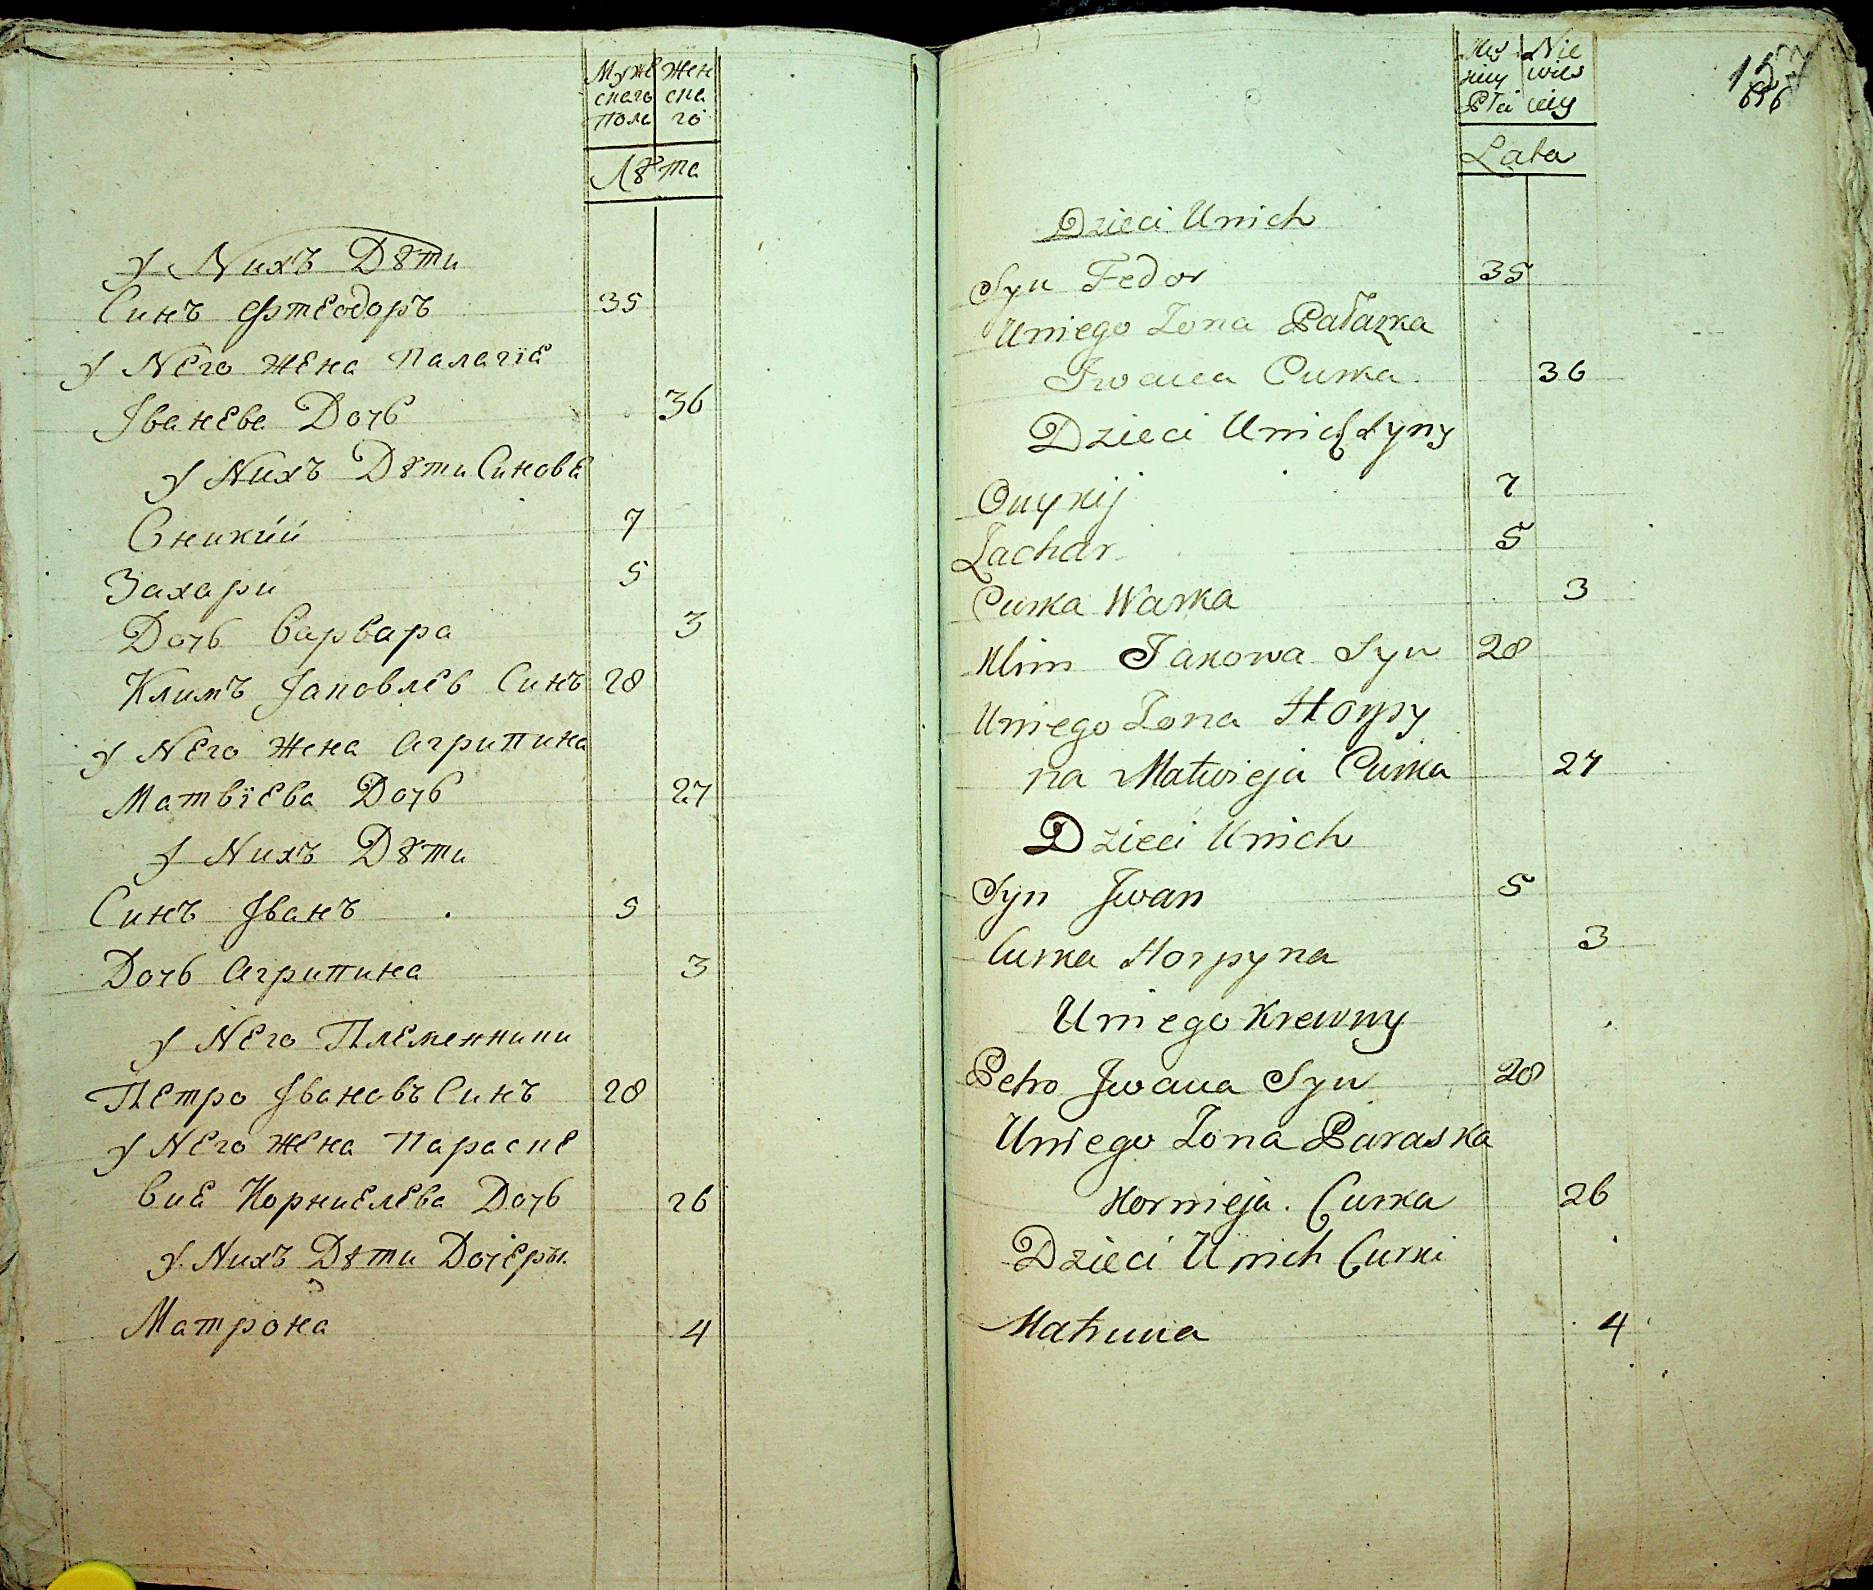 Мужескаго пола
Женскаго
Лѣта
У Нихъ Дѣти
Синъ Фтеодоръ 35
У Него Жена Палагіе
Іванева Дочь 36
У Нихъ Дѣти Синове
Оникий 7
Захари 5
Дочь Варвара 3
Климъ Іаковлев Синъ 28
У Него Жена Агрипина
Матвіева Дочь 27
У Нихъ Дѣти
Синъ Іванъ 5
Дочь Агрипина 3
У Него Племенники
Петро Івановъ Синъ 28
У Него Жена Параске
вие Корниелева Дочь 26
У Нихъ Дѣти Дочеры
Матрона 4
Lata
Dzieci Unich
Syn Fedor 35
Uniego Zona Pałazka
Iwana Curka 36
Dzieci Unich Syny
Onykij 7
Zachar 5
Curka Warka 3
Klim Jakowa Syn 28
Uniego Zona Horpy
na Matwieja Curka 27
Dzieci Unich
Syn Jwan 5
Curka Horpyna 3
Uniego Krewny
Petro Jwana Syn 28
Uniego Zona Paraska
Kornieja Curka 26
Dzieci Unich Curki
Matruna 4